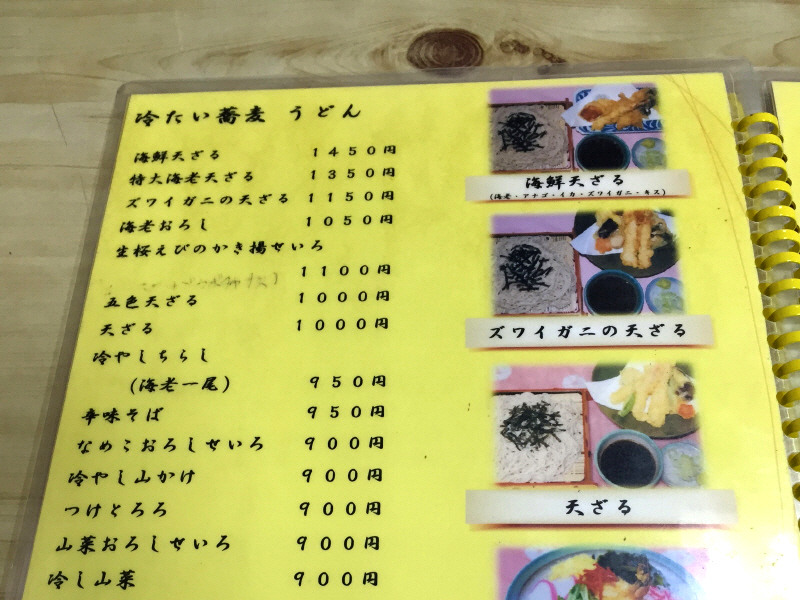 冷たい蕎麦 うどん
海鮮天ざる 1450円
特大海老天ざる 1350円
ズワイガニの天ざる 1150円
海老おろし 1050円
生桜えびのかき揚せいろ
1100円
五色天ざる 1000円
天ざる 1000円
冷やしちらし
(海老一尾) 950円
辛味そば 950円
なめこおろしせいろ 900円
冷やし山かけ 900円
つけとろろ 900円
山菜おろしせいろ 900円
冷し山菜 900円
海鮮天ざる
(海老・アナゴ・イカ・ズワイガニ・キス)
ズワイガニの天ざる
天ざる